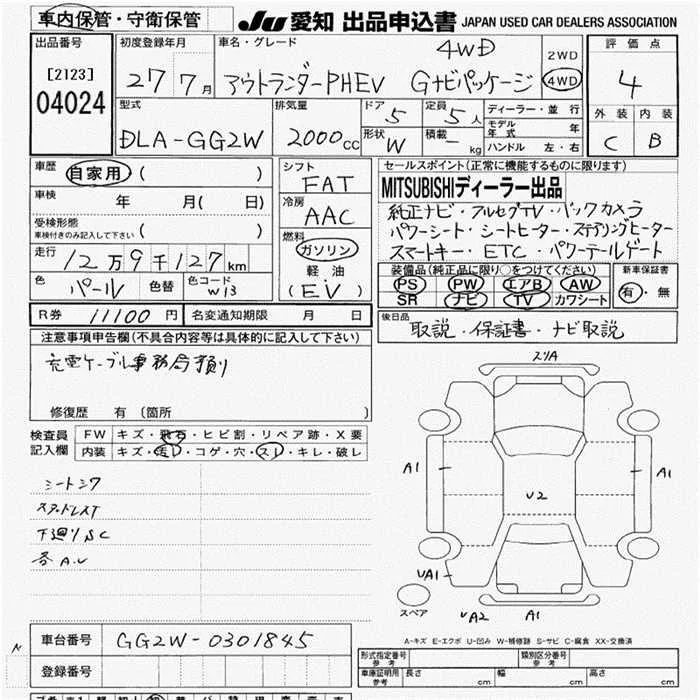 車内保管・守衛保管
JU 愛知 出品申込書 JAPAN USED CAR DEALERS ASSOCIATION
出品番号
[2123]
04024
初度登録年月
27 7月
車名・グレード
4WD
アウトランダーPHEV Gナビパッケージ
2WD
4WD
評価点
4
外装 内装
C B
型式
DLA-GG2W
排気量
2000cc
ドア 5
定員 5人
形状 W
積載 - kg
ディーラー・並行
モデル年式 年
ハンドル 左・右
車歴 自家用 ( )
車検 年 月( 日)
受検形態
車検付きのみ記入して下さい ( )
走行 12万9千127km
色 パール 色替 色コード W13
シフト
FAT
冷房
AAC
燃料
ガソリン
軽油
(EV)
セールスポイント(正常に機能するものに限ります)
MITSUBISHIディーラー出品
純正ナビ・フルセグTV・バックカメラ
パワーシート・シートヒーター・ステアリングヒーター
スマートキー・ETC・パワーテールゲート
装備品(純正品に限り○をつけてください)
PS PW エアB AW
SR ナビ TV カワシート
新車保証書
有・無
R券 11100円 名変通知期限 月 日
後日品
取説・保証書・ナビ取説
注意事項申告欄(不具合内容等は具体的に記入して下さい)
充電ケーブル事務局預り
修復歴 有 (箇所 )
検査員記入欄
FW キズ・飛石・ヒビ割・リペア跡・X要
内装 キズ・汚レ・コゲ・穴・スレ・キレ・破レ
シートシワ
スタッドレスT
下廻りSC
各A.U
スリA
A1
A1
U2
UA1
UA2
A1
スペア
A-キズ E-エクボ U-凹み W-補修跡 S-サビ C-腐食 XX-交換済
N
車台番号 GG2W-0301845
登録番号
形式指定番号 参考
類別区分番号 参考
車庫証明用 参考 長さ cm 幅 cm 高さ cm